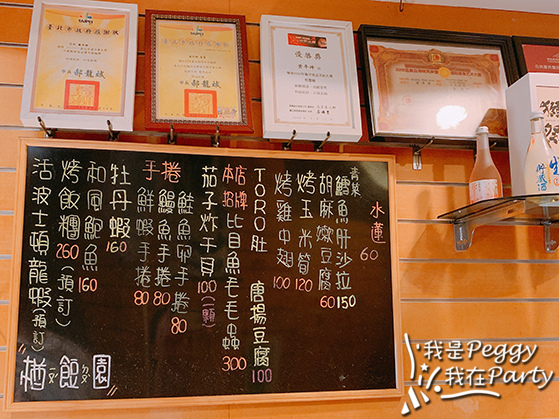 臺北市政府感謝狀
郝龍斌
郝龍斌
優勝獎
青菜 水蓮 60
鱈魚肝沙拉 150
胡麻嫩豆腐 60
烤玉米筍 120
烤雞中翅 100
TORO肚 唐揚豆腐 100
本店招牌比目魚毛毛蟲 300
茄子炸干貝 100 (一顆)
手捲 鮭魚卵手捲 80
鰻魚手捲 80
鮮蝦手捲 80
牡丹蝦 160
和風鮑魚 160
烤飯糰 260 (預訂)
活波士頓龍蝦 (預訂)
園
我是Peggy
我在Party